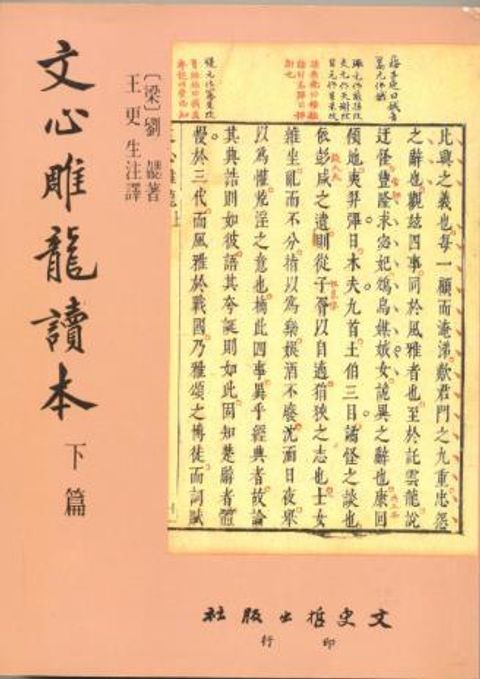 文心雕龍讀本 下篇
〔梁〕劉勰著
王更生注譯
比興之義也每一顧而淹涕歎君門之九重忠怨
之辭也觀玆四事同於風雅者也至於託雲龍說
迂怪豐隆求宓妃鴆鳥媒娀女詭異之辭也康回
傾地夷羿彈日木夫九首土伯三目譎怪之談也
依彭咸之遺則從子胥以自適狷狹之志也士女
雜坐亂而不分指以爲樂娛酒不廢沈湎日夜舉
以爲懽荒淫之意也摘此四事異乎經典者故論
其典誥則如彼語其夸誕則如此固知楚辭者體
慢於三代而風雅於戰國乃雅頌之博徒而詞賦
文史哲出版社
印行